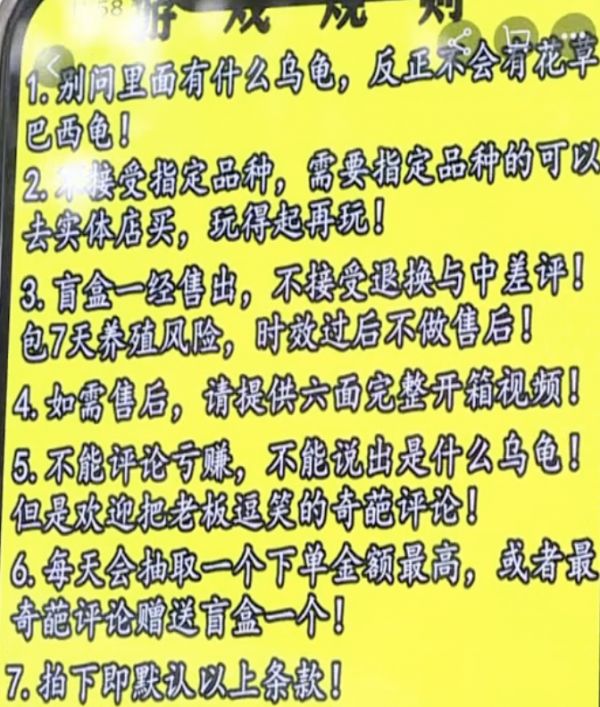 :58
游戏规则
1. 别问里面有什么乌龟，反正不会有花草
巴西龟！
2. 不接受指定品种，需要指定品种的可以
去实体店买，玩得起再玩！
3. 盲盒一经售出，不接受退换与中差评！
包7天养殖风险，时效过后不做售后！
4. 如需售后，请提供六面完整开箱视频！
5. 不能评论亏赚，不能说出是什么乌龟！
但是欢迎把老板逗笑的奇葩评论！
6. 每天会抽取一个下单金额最高，或者最
奇葩评论赠送盲盒一个！
7. 拍下即默认以上条款！